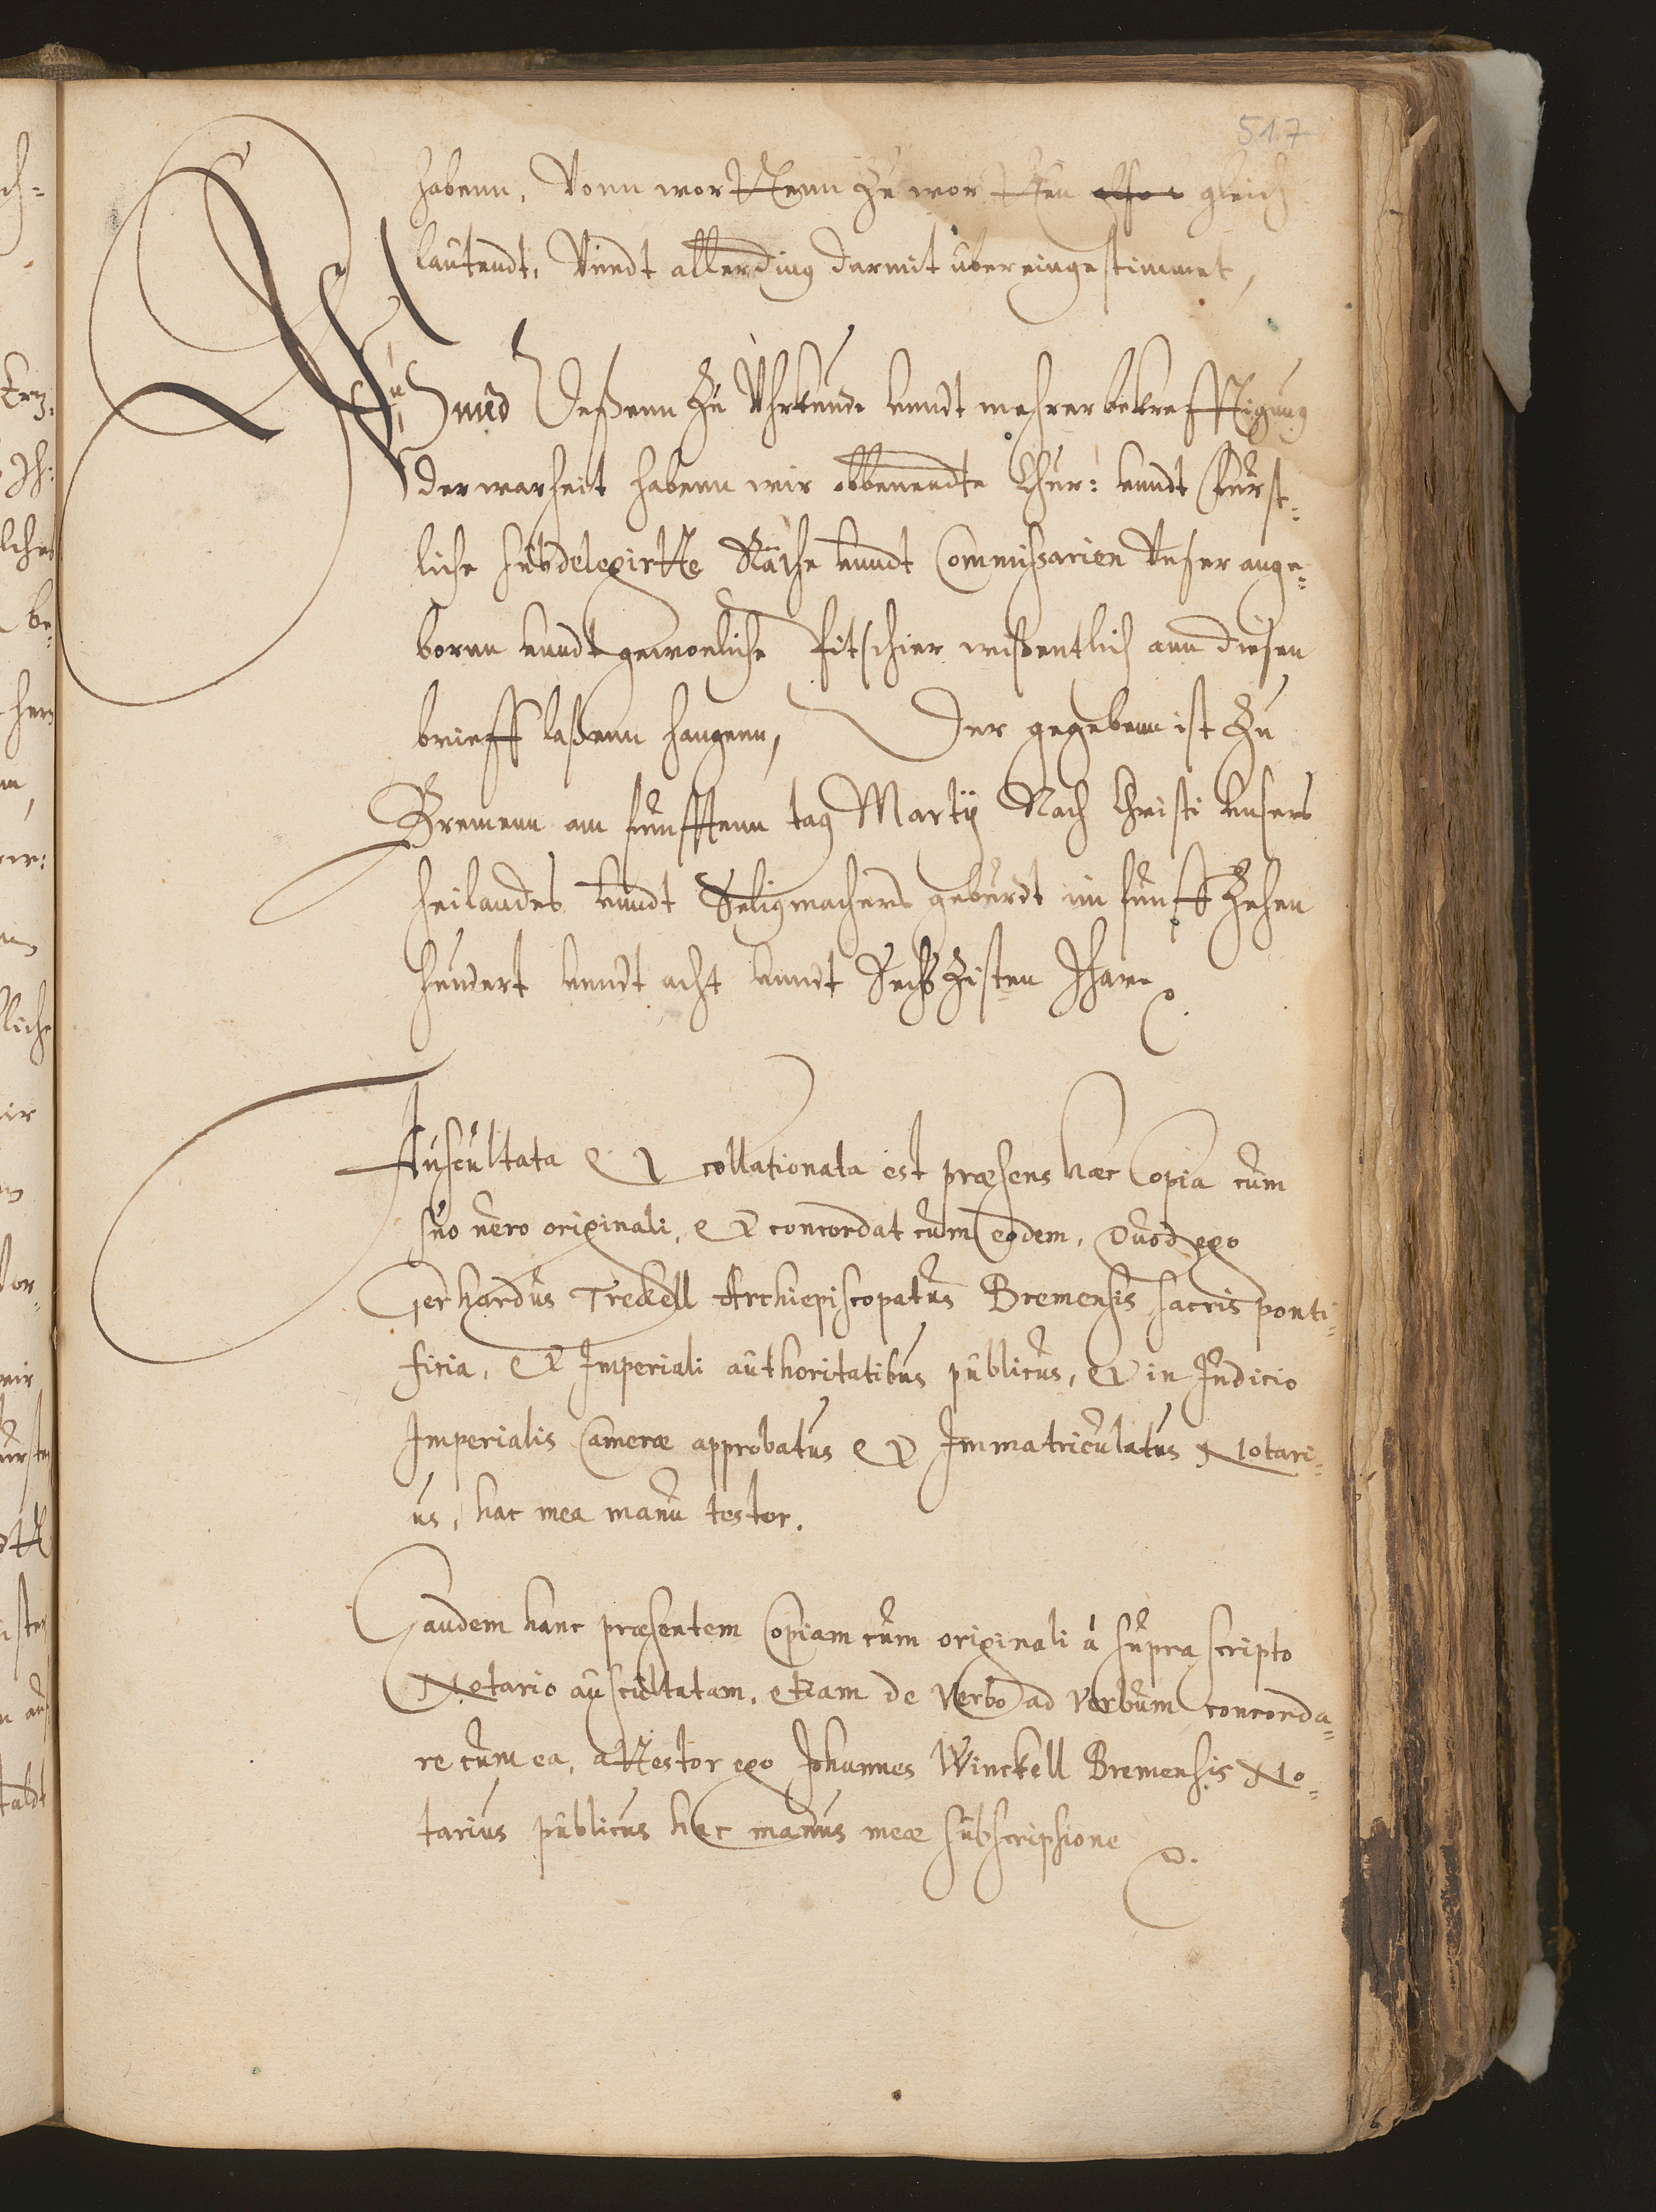 517
habenn, Vonn wortttenn zu wortten gleich
lautendt, Vnndt allerding darmit ubereingestimmet,
Vnnd deßenn zu Uhrkunde vnndt mehrer bekrefftigung
der warheit habenn wir obbenendte Chur: vnndt Furst-
liche subdelegirtte Räthe vnndt Commissarien Vnser ange-
bornn vnndt gewonliche Pitschier wißentlich ann diesen
brieff laßenn hangenn, Der gegebenn ist zu
Bremenn am funfftenn tag Martij Nach Christi vnsers
heilandes vnndt Seligmachers geburdt im funffzehen
hundert vnndt acht vnndt Sechszisten Jhare
Auscultata et collationata est præsens hæc Copia cum
suo uero originali, et concordat cum eodem, Quod ego
Gerhardus Treckell Archiepiscopatus Bremensis sacris ponti-
ficia, et Imperiali authoritatibus publicus, et in Judicio
Imperialis Cameræ approbatus et Immatriculatus Notari-
us, hac mea manu testor.
Eandem hanc præsentem Copiam cum originali à supra scripto
Notario auscultatam, etiam de verbo ad verbum concorda-
re cum ea, attestor ego Johannes Winckell Bremensis No-
tarius publicus hac manus meæ subscriptione